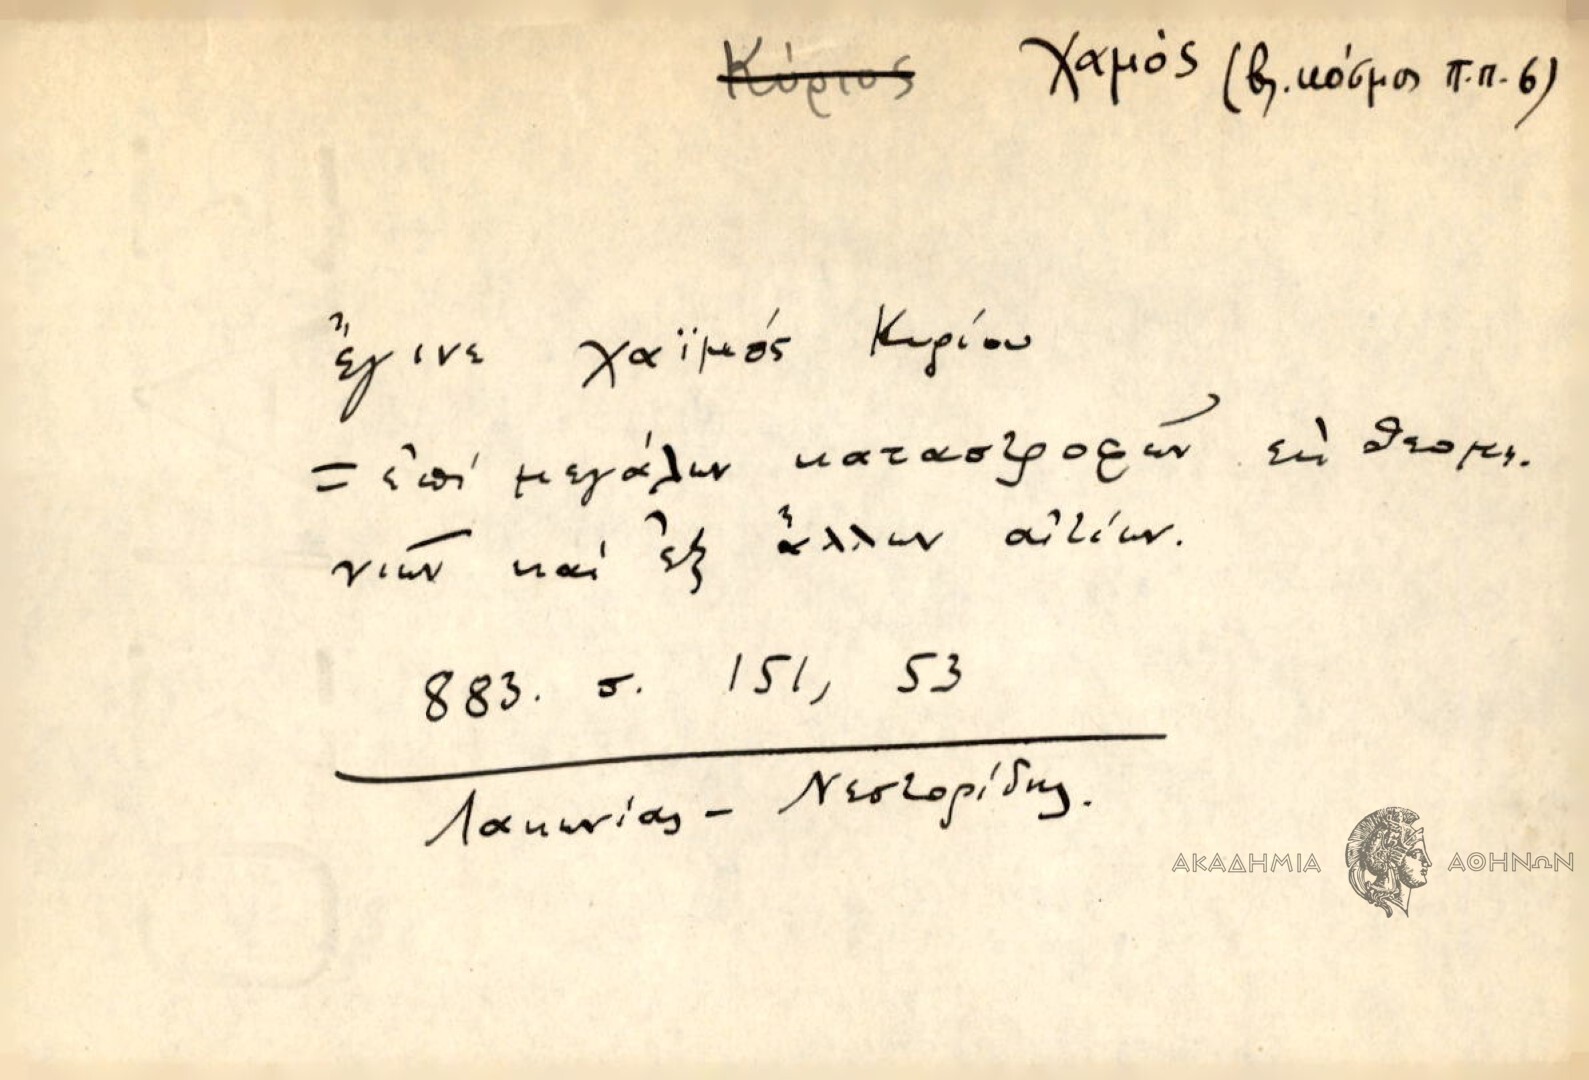 Κύριος χαμὸς (βλ. κόσμος π.π. 6)
ἔγινε χαϊμός Κυρίου
= ἐπί μεγάλων καταστροφῶν ἐκ θεομη-
νιῶν καί ἐξ ἄλλων αἰτίων.
883. σ. 151, 53
Λακωνίας - Νεστορίδης.
ΑΚΑΔΗΜΙΑ ΑΘΗΝΩΝ